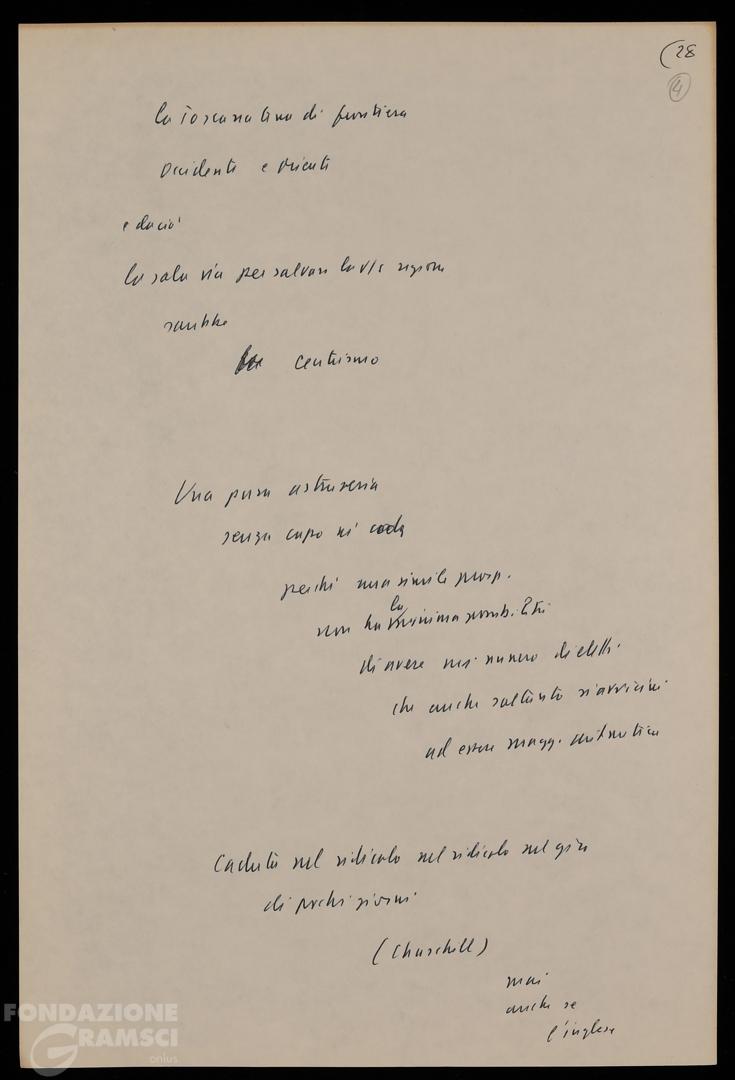 (28
4
la Toscana lina di frontiera
Occidente e Oriente
e da ciò
la sola via per salvare la v/s regione
sarebbe
centrismo
Una pura astruseria
senza capo né coda
perché una simile prosp.
non ha la minima possibilità
di avere un numero di eletti
che anche soltanto si avvicini
ad essere magg. aritmetica
Caduta nel ridicolo nel ridicolo nel giro
di pochi giorni
(Churchill)
mai
anche se
l'inglese
FONDAZIONE
GRAMSCI
onlus